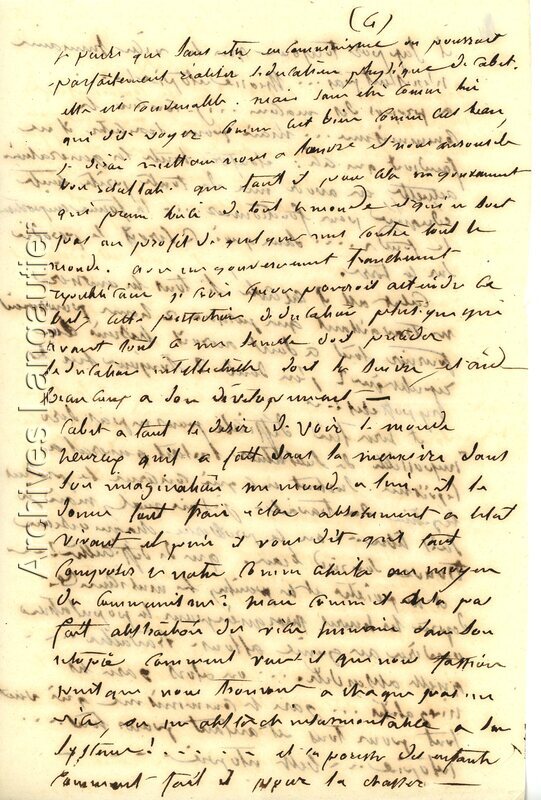 (4)
je parle que sans etre en communisme on pourrait
parfaitement realiser l'education physique de Cabet.
elle est convenable. mais sans etre comme lui
qui dit voyez comme cest bien comme cest beau,
je dirai mettons nous a l'œuvre et nous aurons de
bons resultats. que faut il pour cela un gouvernement
qui prenne de tout le monde et qui ne soit
pas au profit de quelques uns contre tout le
monde. avec un gouvernement franchement
republicain je crois qu'on pourroit atteindre ce
but, cette perfection d'education phisique qui
avant tout a mon sens doit preceder
l'education intellectuelle dont la suivre et aide
beaucoup a son développement —
Cabet a tant le desir de voir le monde
heureux qu'il a fait dans la dans
son imagination un monde a lui. il le
donne tout absolument a l'etat
vivant et puis il vous dit qu'il faut
composer le notre comme celui la au moyen
du communisme: mais comme il n'a pas
fait abstraction du vice humain dans son
utopie comment veut il que nous fassions
puisque nous trouvons a chaque pas un
vice, ou un obstacle insurmontable a son
système! . . . . . . et la paresse des enfants
comment fait il pour la chasser —
Archives Langautier